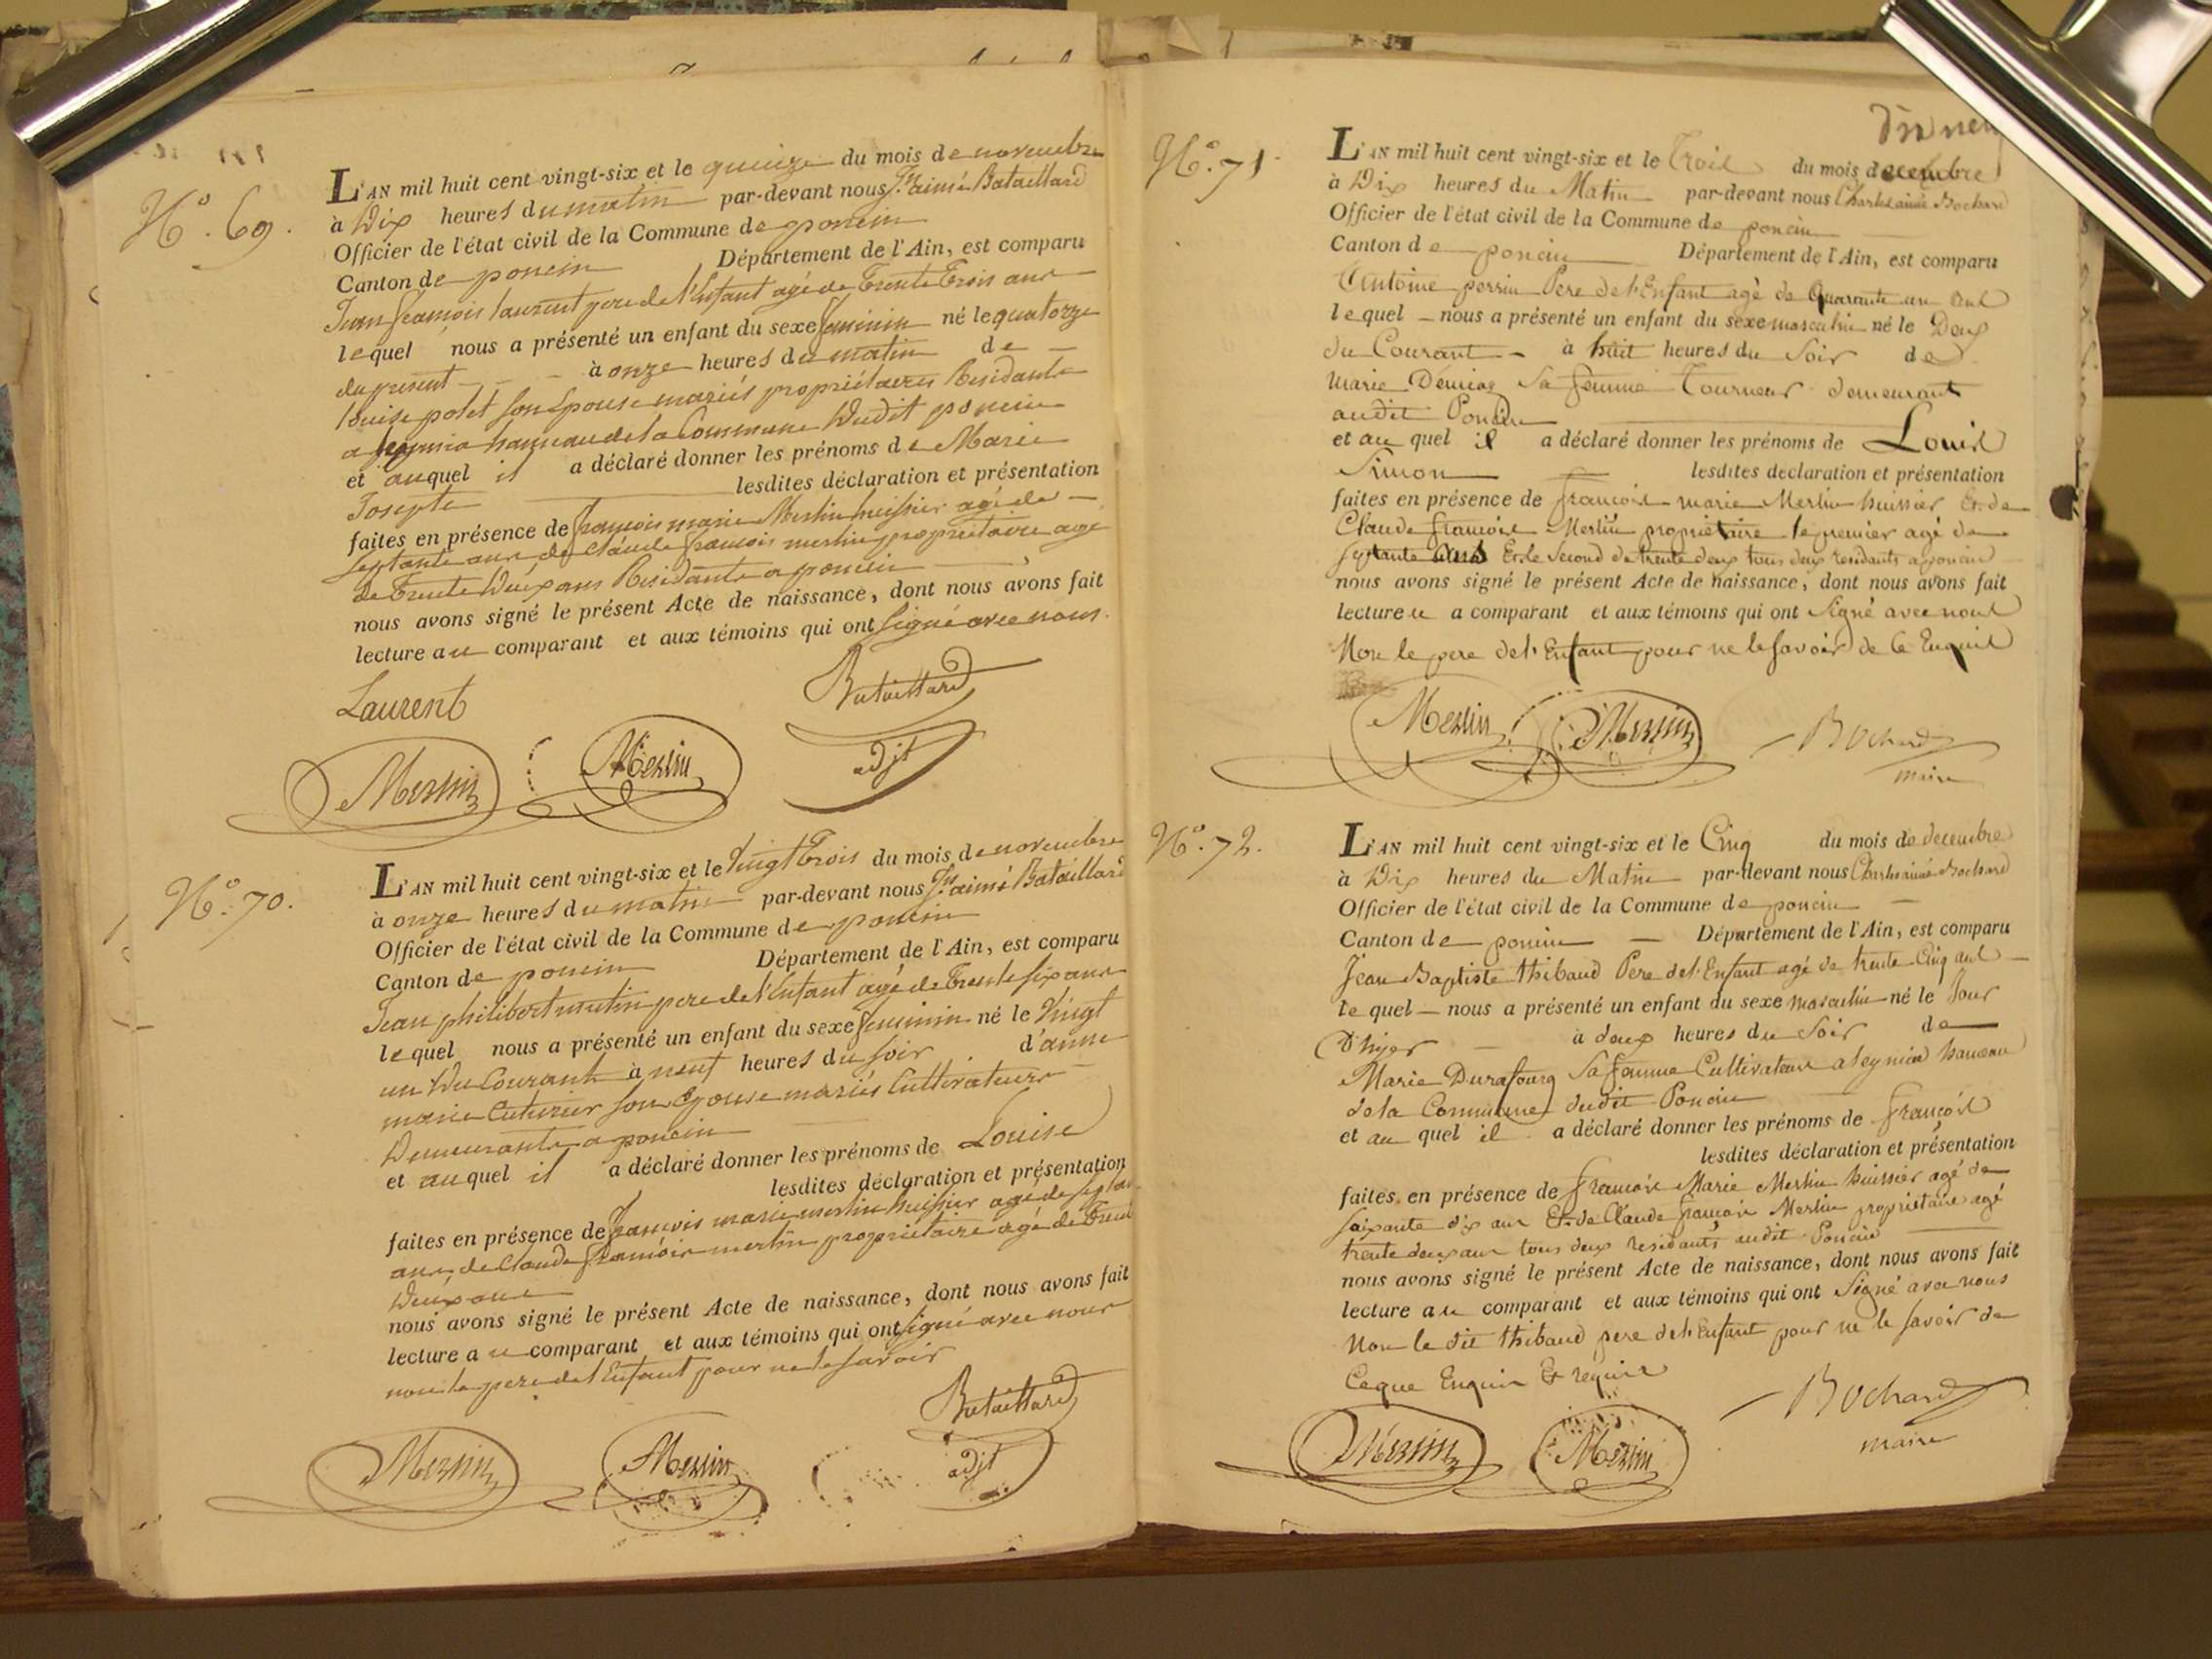 N.º 69.
L'AN mil huit cent vingt-six et le quinze du mois de novembre
à Dix heures du matin par-devant nous Jn. aimé Bataillard
Officier de l'état civil de la Commune de poncin
Canton de poncin Département de l'Ain, est comparu
Jean françois laurent pere de l'Enfant agé de Trente Trois ans
lequel nous a présenté un enfant du sexe feminin né le quatorze
du present à onze heures du matin de
louise polet son Epouse mariés propriétaires Residants
a hameau de la Commune Dudit poncin
et auquel il a déclaré donner les prénoms de Marie
Josepte lesdites déclaration et présentation
faites en présence de françois marie Merlin huissier agé de
septante ans, de Claude françois merlin propriétaire agé
de Trente Deux ans Residants a poncin
nous avons signé le présent Acte de naissance, dont nous avons fait
lecture au comparant et aux témoins qui ont signé avec nous.
Laurent
Bataillard
adjt
Merlin
Merlin
N.º 70.
L'AN mil huit cent vingt-six et le Vingt Trois du mois de novembre
à onze heures du matin par-devant nous Jn. aimé Bataillard
Officier de l'état civil de la Commune de poncin
Canton de poncin Département de l'Ain, est comparu
Jean philibert mutin pere de l'Enfant agé de Trente six ans
lequel nous a présenté un enfant du sexe feminin né le Vingt
un Du Courant à neuf heures du soir d'anne
marie Cuturier son Epouse mariés Cultivateurs
Demeurants a poncin
et auquel il a déclaré donner les prénoms de Louise
lesdites déclaration et présentation
faites en présence de françois marie merlin huissier agé de septante
ans, de Claude françois merlin propriétaire agé de Trente
Deux ans
nous avons signé le présent Acte de naissance, dont nous avons fait
lecture au comparant et aux témoins qui ont signé avec nous
non le pere de l'Enfant pour ne le savoir
Bataillard
adjt
Merlin
Merlin
N.º 71
L'AN mil huit cent vingt-six et le Trois du mois decembre
à Dix heures du Matin par-devant nous Charles aimé Bochard
Officier de l'état civil de la Commune de poncin
Canton de poncin Département de l'Ain, est comparu
Antoine perrin Pere de l'Enfant agé de Quarante un ans
lequel nous a présenté un enfant du sexe masculin né le Deux
du Courant à huit heures du Soir de
Marie Sa femme Tourneur demeurant
audit Poncin
et au quel il a déclaré donner les prénoms de Louis
Simon lesdites declaration et présentation
faites en présence de françois marie Merlin huissier Et de
Claude françois Merlin propriétaire le premier agé de
septante ans Et le Second de trente deux tous deux residants a poncin
nous avons signé le présent Acte de naissance, dont nous avons fait
lecture au comparant et aux témoins qui ont Signé avec nous
Non le pere de l'Enfant pour ne le savoir de Ce Enquis
Merlin
Merlin
Bochard
maire
N.º 72.
L'AN mil huit cent vingt-six et le Cinq du mois de decembre
à Dix heures du Matin par-devant nous Charles aimé Bochard
Officier de l'état civil de la Commune de poncin
Canton de poncin Département de l'Ain, est comparu
Jean Baptiste thibaud Pere de l'Enfant agé de trente Cinq ans
lequel nous a présenté un enfant du sexe masculin né le Jour
D'hyer à deux heures du Soir de
Marie Durafourg Sa femme Cultivateurs a leymiat hameau
de la Commune dudit Poncin
et au quel il a déclaré donner les prénoms de françois
lesdites déclaration et présentation
faites en présence de françois Marie Merlin huissier agé de
soixante dix ans Et de Claude françois Merlin propriétaire agé
trente deux ans tous deux residants audit Poncin
nous avons signé le présent Acte de naissance, dont nous avons fait
lecture au comparant et aux témoins qui ont Signé avec nous
Non le dit thibaud pere de l'Enfant pour ne le savoir de
Ceque Enquis Et requis
Bochard
maire
Merlin
Merlin